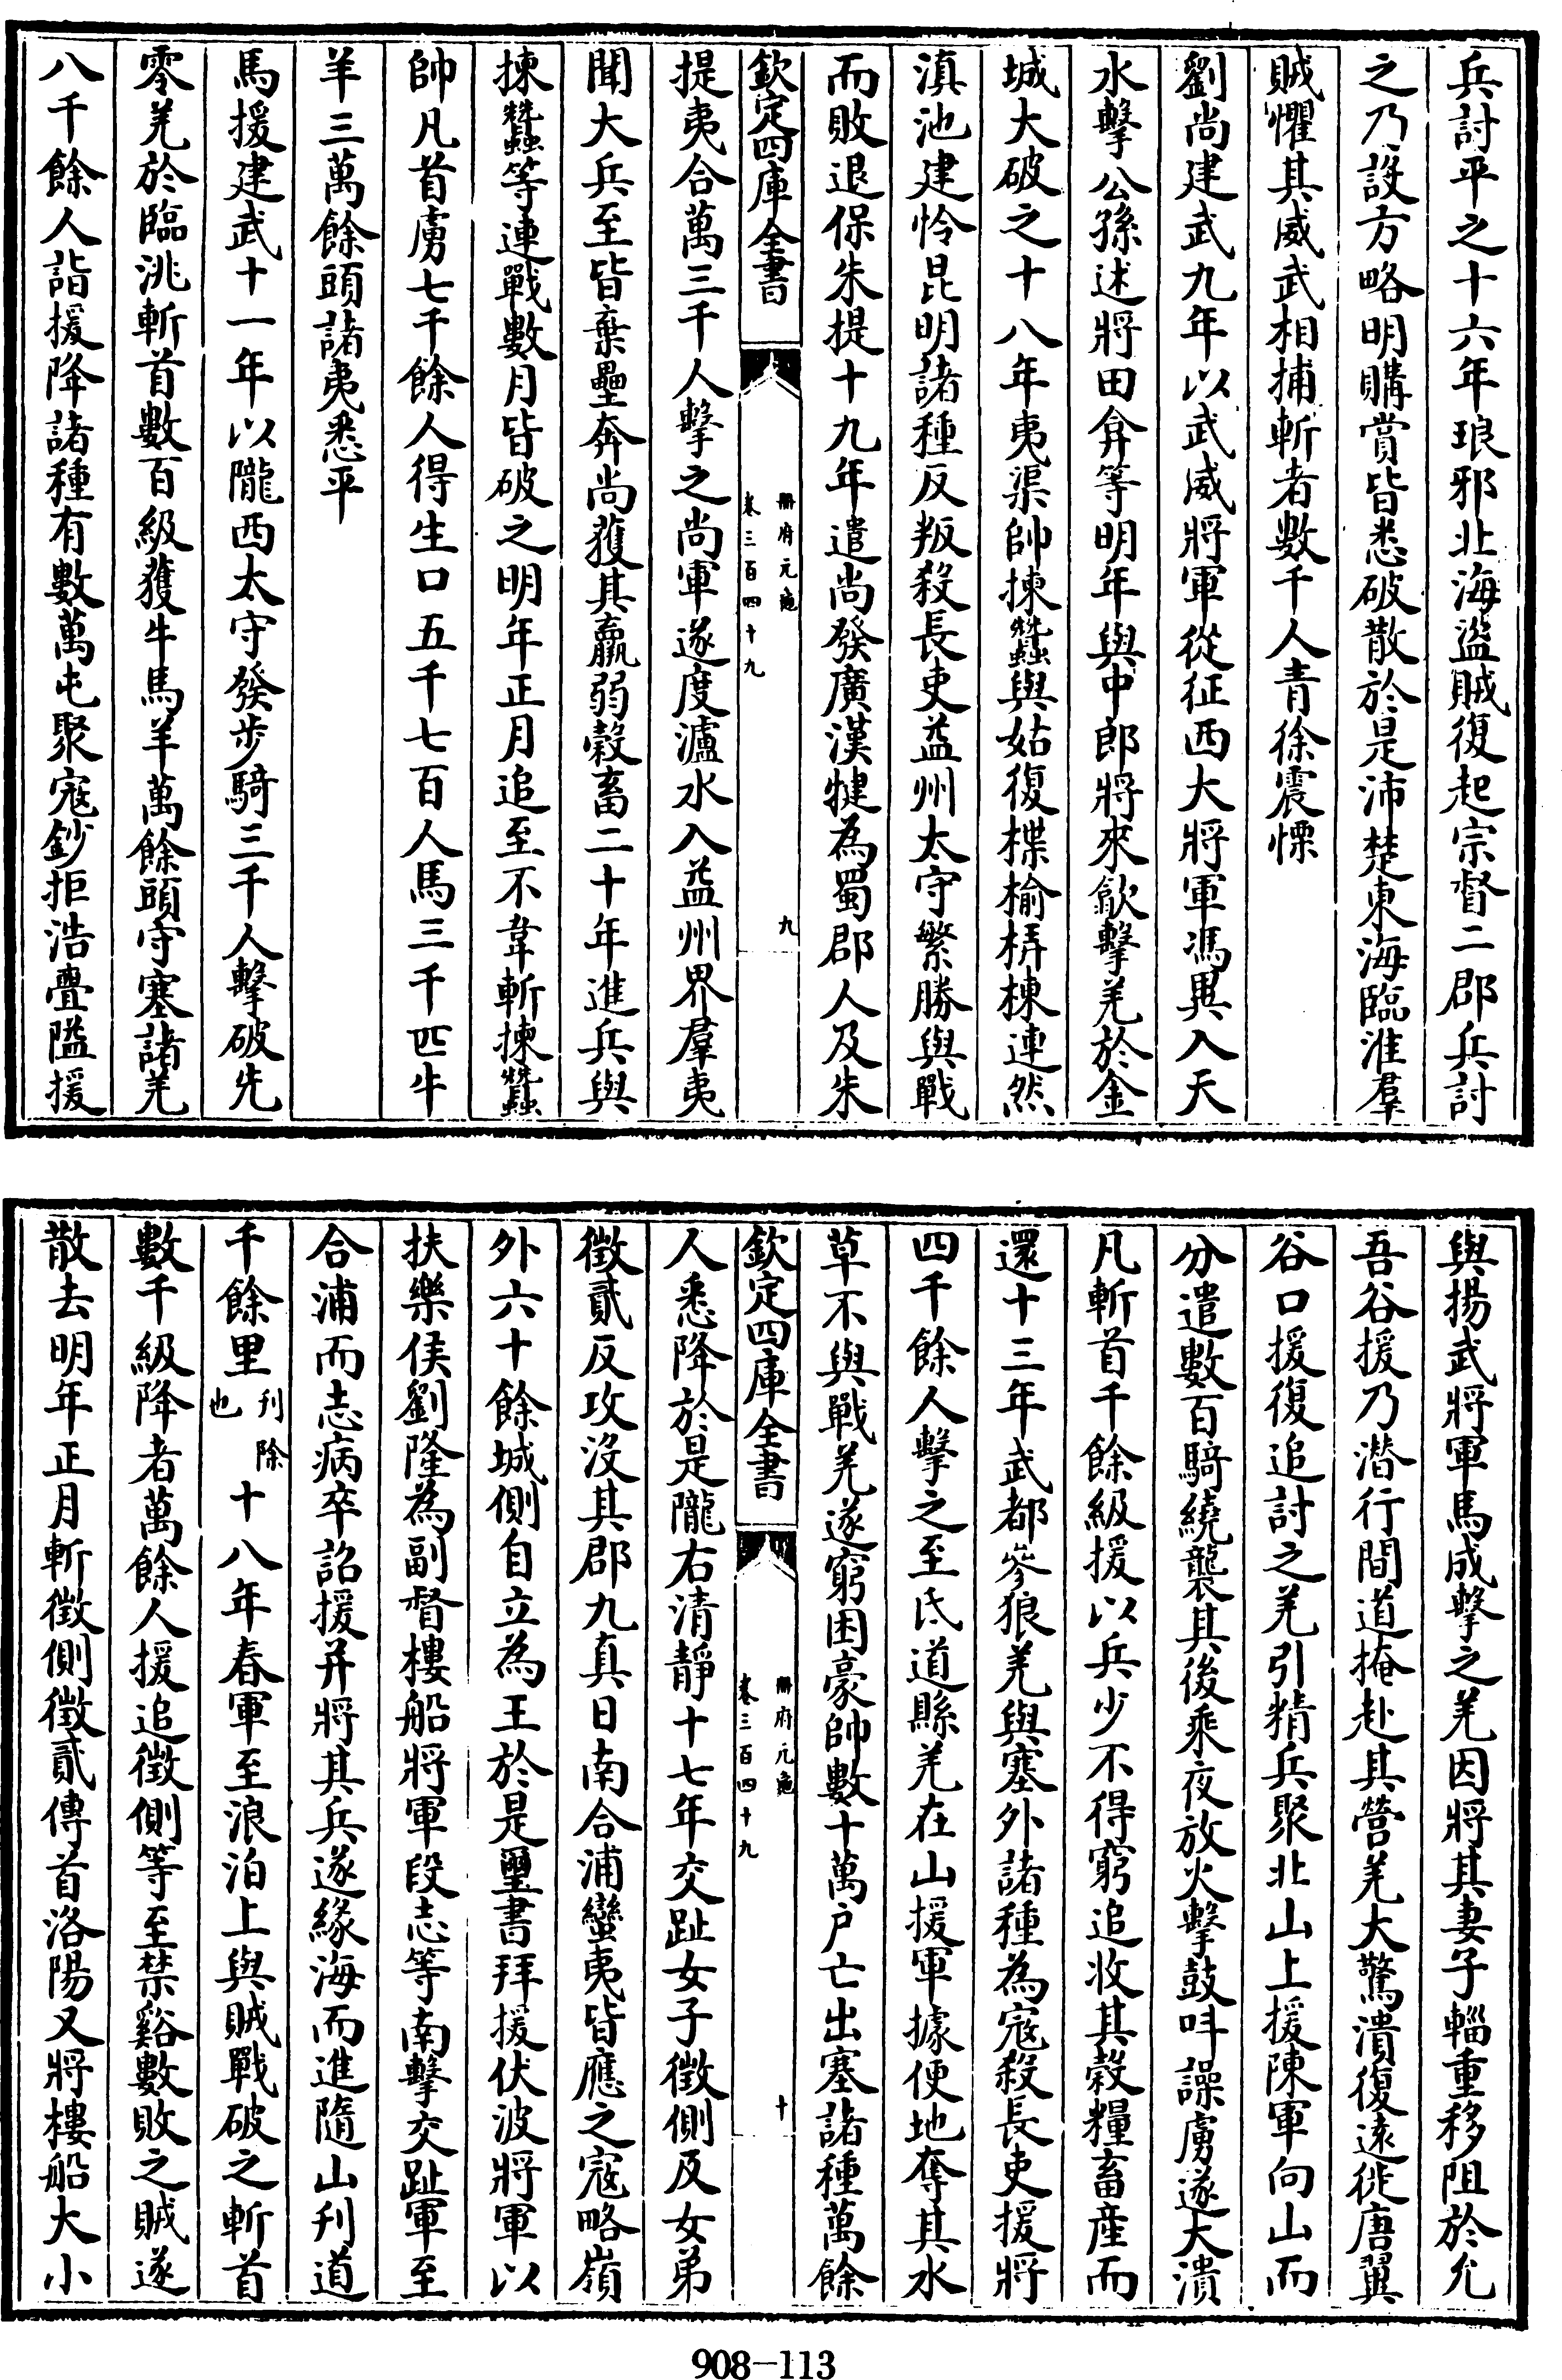 兵討平之十六年琅邪北海盜賊復起宗督二郡兵討
之乃設方略明購賞皆悉破散於是沛楚東海臨淮羣
賊懼其威武相捕斬者數千人青徐震慄
劉尚建武九年以武威將軍從征西大將軍馮異入天
水擊公孫述將田弇等明年與中郎將來歙擊羌於金
城大破之十八年夷渠帥揀蠶與姑復楪榆梇棟連然
滇池建怜昆明諸種反叛殺長吏益州太守繁勝與戰
而敗退保朱提十九年遣尚發廣漢犍為蜀郡人及朱
欽定四庫全書
冊府元龜
卷三百四十九
九
提夷合萬三千人擊之尚軍遂度瀘水入益州界羣夷
聞大兵至皆棄壘奔尚獲其羸弱穀畜二十年進兵與
揀蠶等連戰數月皆破之明年正月追至不韋斬揀蠶
帥凡首虜七千餘人得生口五千七百人馬三千匹牛
羊三萬餘頭諸夷悉平
馬援建武十一年以隴西太守發步騎三千人擊破先
零羌於臨洮斬首數百級獲牛馬羊萬餘頭守塞諸羌
八千餘人詣援降諸種有數萬屯聚寇鈔拒浩亹隘援
與揚武將軍馬成擊之羌因將其妻子輜重移阻於允
吾谷援乃潛行間道掩赴其營羌大驚潰復遠徙唐翼
谷口援復追討之羌引精兵聚北山上援陳軍向山而
分遣數百騎繞襲其後乘夜放火擊鼓呌譟虜遂大潰
凡斬首千餘級援以兵少不得窮追收其穀糧畜產而
還十三年武都參狼羌與塞外諸種為寇殺長吏援將
四千餘人擊之至氐道縣羌在山援軍據便地奪其水
草不與戰羌遂窮困豪帥數十萬户亡出塞諸種萬餘
欽定四庫全書
冊府元龜
卷三百四十九
十
人悉降於是隴右清靜十七年交趾女子徵側及女弟
徵貳反攻沒其郡九真日南合浦蠻夷皆應之寇略嶺
外六十餘城側自立為王於是璽書拜援伏波將軍以
扶樂侯劉隆為副督樓船將軍段志等南擊交趾軍至
合浦而志病卒詔援并將其兵遂緣海而進隨山刋道
千餘里刋除也十八年春軍至浪泊上與賊戰破之斬首
數千級降者萬餘人援追徵側等至禁谿數敗之賊遂
散去明年正月斬徵側徵貳傳首洛陽又將樓船大小
908-113